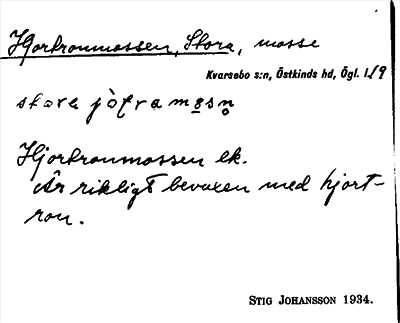 Hjortronmossen, Stora, mosse
Kvarsebo s:n, Östkinds hd, Ögl. 1/9
stora jòţramo̱sn̥
Hjortronmossen ek.
Är rikligt bevuxen med hjort-
ron.
STIG JOHANSSON 1934.